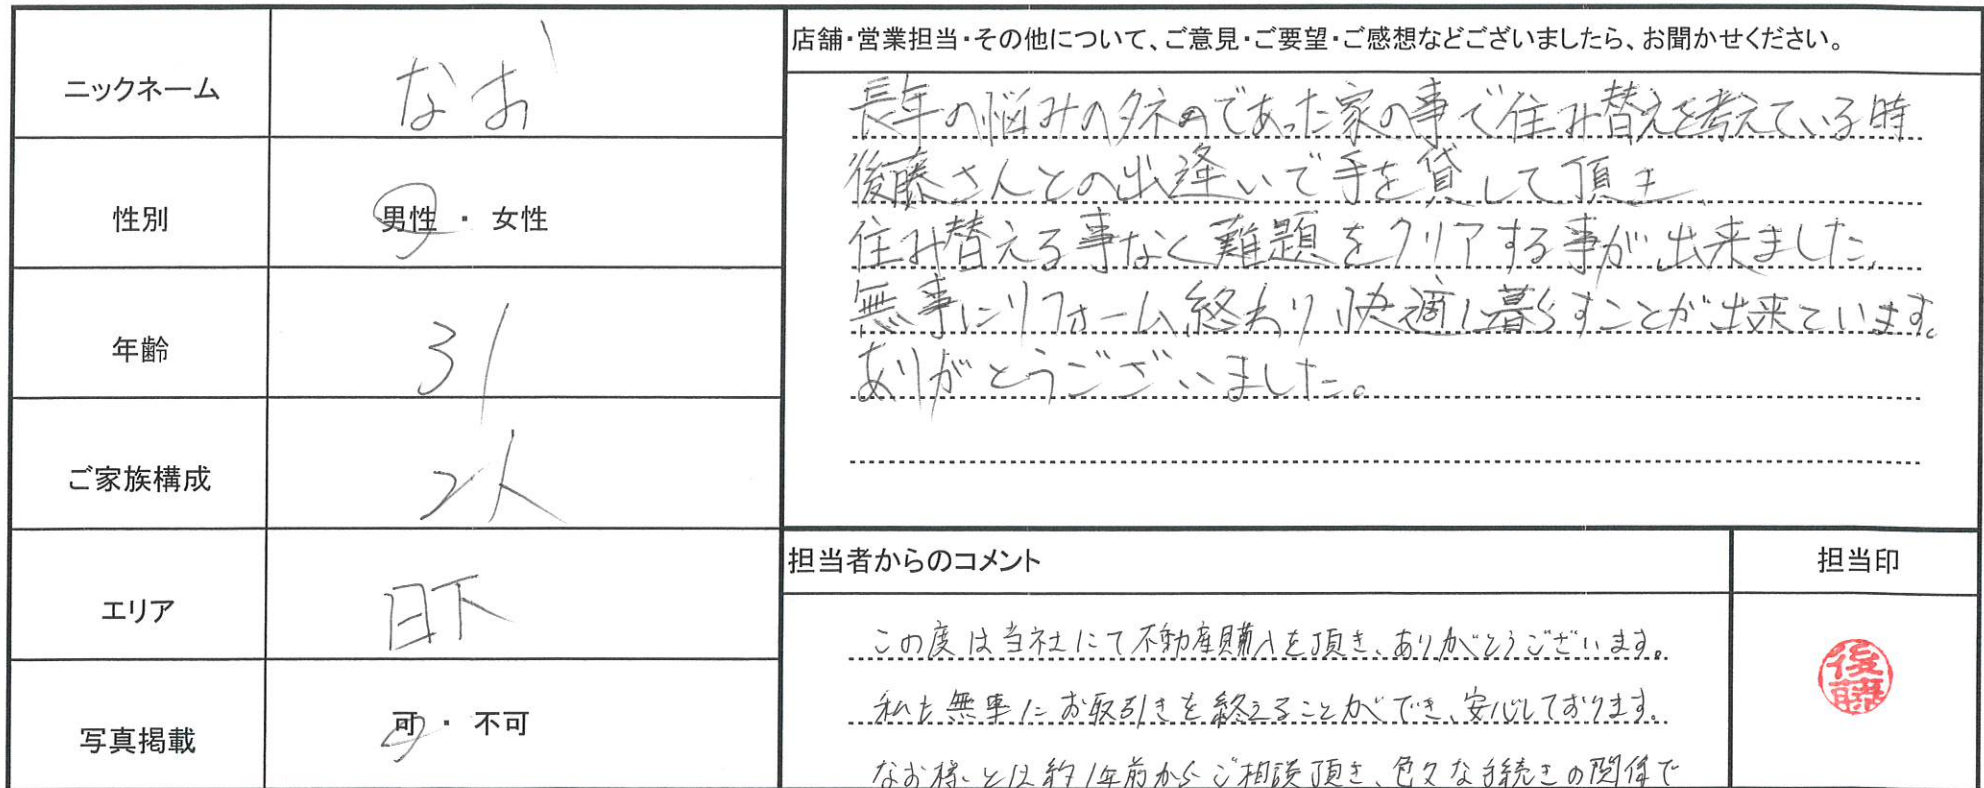 ニックネーム
なお
性別
男性 ・ 女性
年齢
31
ご家族構成
2人
エリア
日下
写真掲載
可 ・ 不可
店舗・営業担当・その他について、ご意見・ご要望・ご感想などございましたら、お聞かせください。
長年の悩みのタネのであった家の事で住み替えを考えている時
後藤さんとの出逢いで手を貸して頂き、
住み替える事なく難題をクリアする事が出来ました。
無事にリフォーム終わり快適に暮らすことが出来ています。
ありがとうございました。
担当者からのコメント
この度は当社にて不動産購入を頂き、ありがとうございます。
私も無事にお取引きを終えることができ、安心しております。
なお様とは約1年前からご相談頂き、色々な手続きの関係で
担当印
後藤